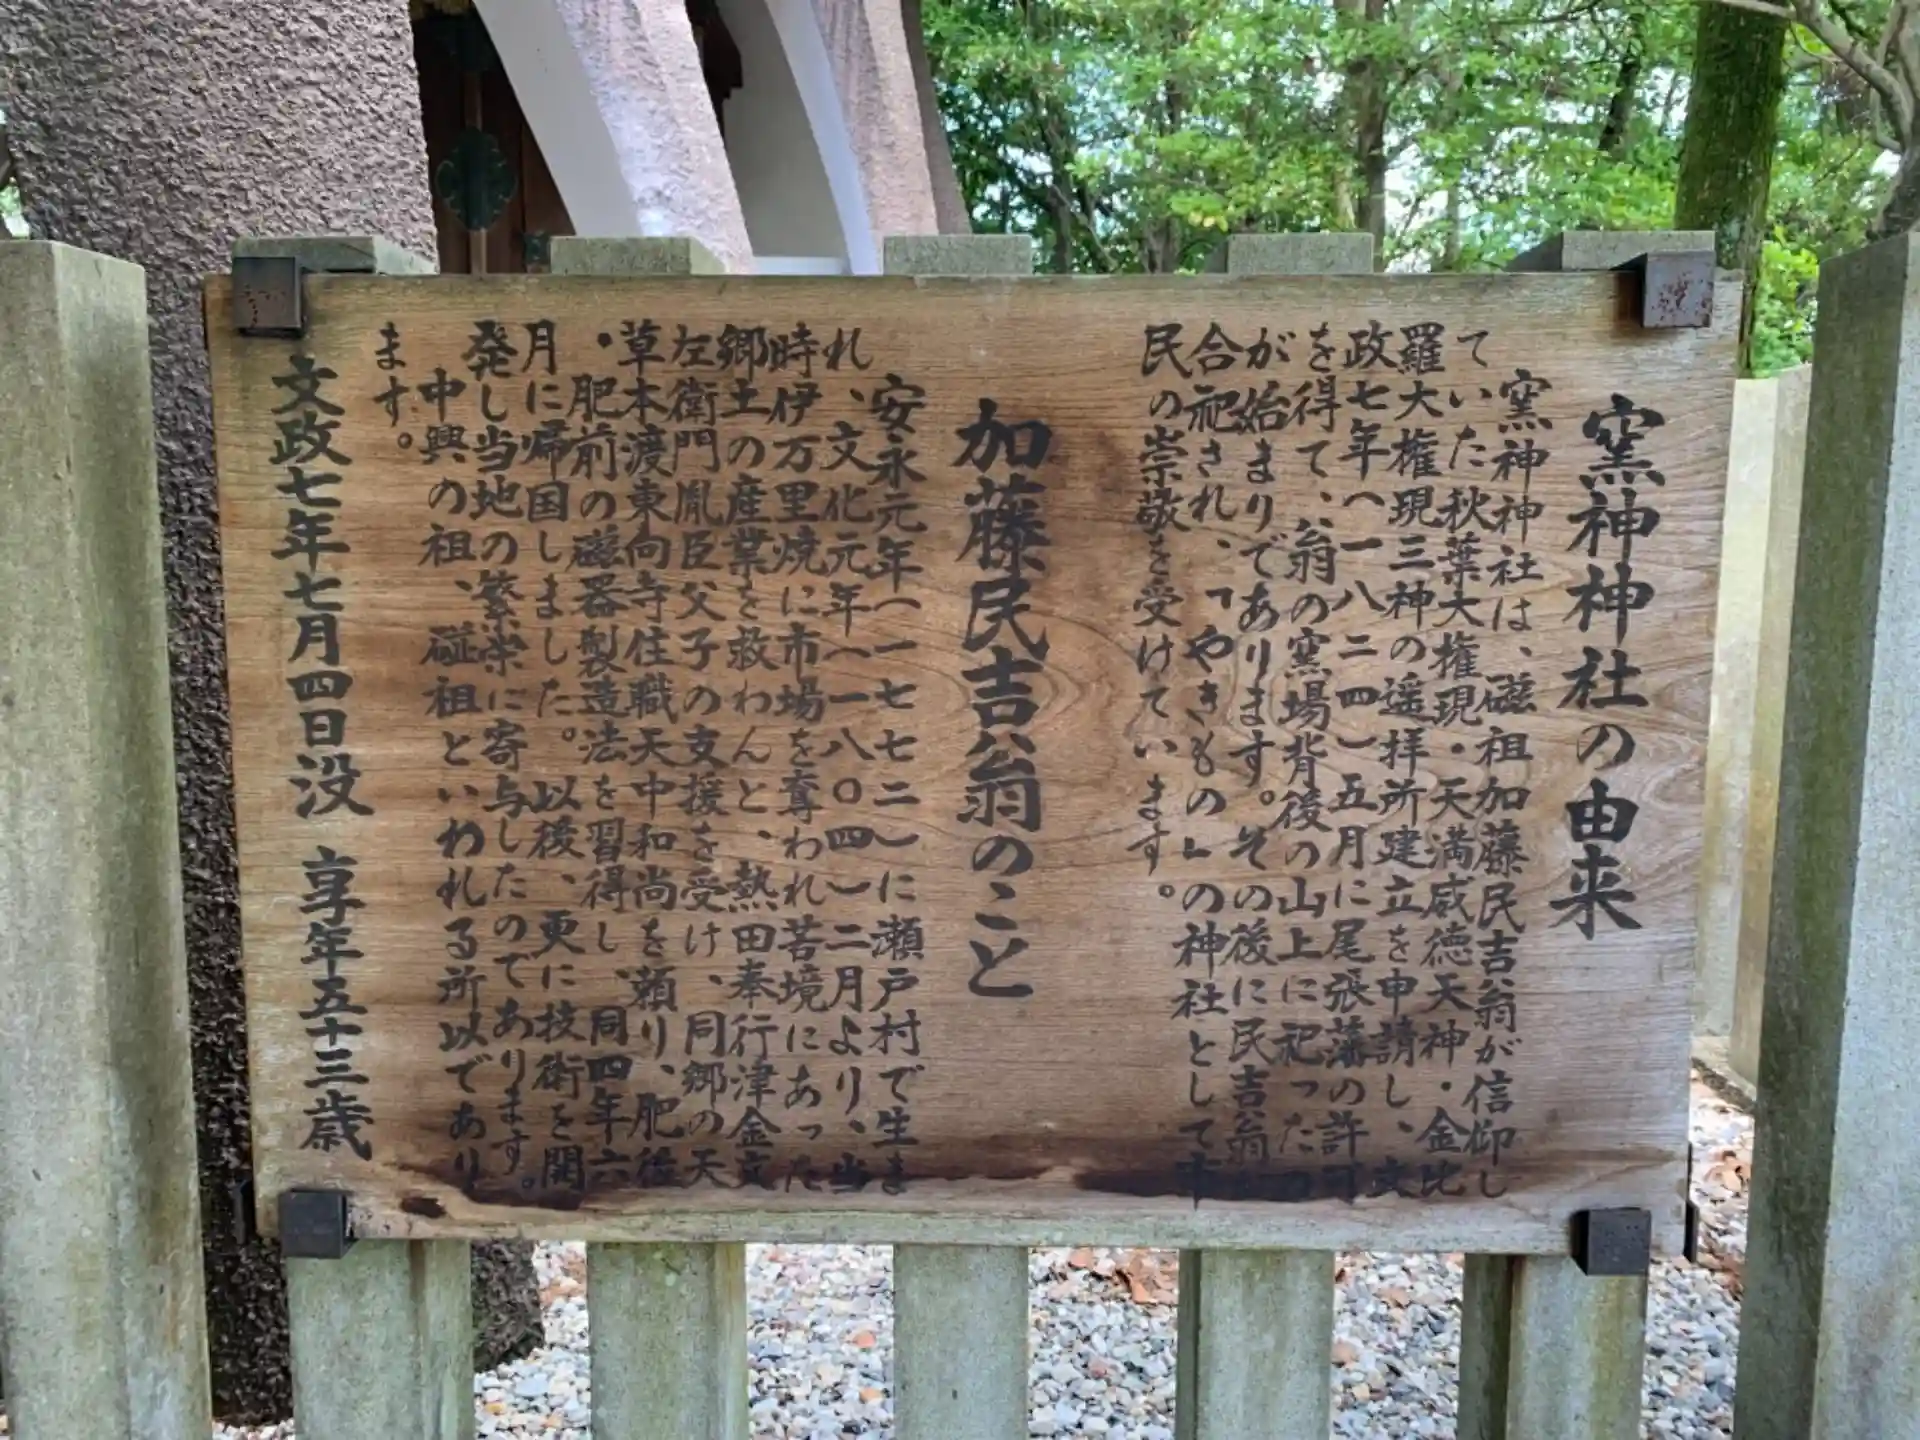 窯神神社の由来
窯神神社は、磁祖加藤民吉翁が信仰し
ていた秋葉大権現・天満威徳天神・金比
羅大権現三神の遥拝所建立を申請し、文
政七年(一八二四)五月に尾張藩の許可
を得て、翁の窯場背後の山上に祀ったの
が始まりであります。その後に民吉翁
合祀され、「やきもの」の神社として市
民の崇敬を受けています。
加藤民吉翁のこと
安永元年(一七七二)に瀬戸村で生ま
れ、文化元年(一八〇四)二月より、当
時伊万里焼に市場を奪われ苦境にあった
郷土の産業を救わんと、熱田奉行津金文
左衛門胤臣父子の支援を受け、同郷の天
草本渡東向寺住職天中和尚を頼り、肥後
・肥前の磁器製造法を習得し、同四年六
月に帰国しました。以後、更に技術を開
発し当地の繁栄に寄与したのであります。
中興の祖、磁祖といわれる所以であり
ます。
文政七年七月四日没 享年五十三歳